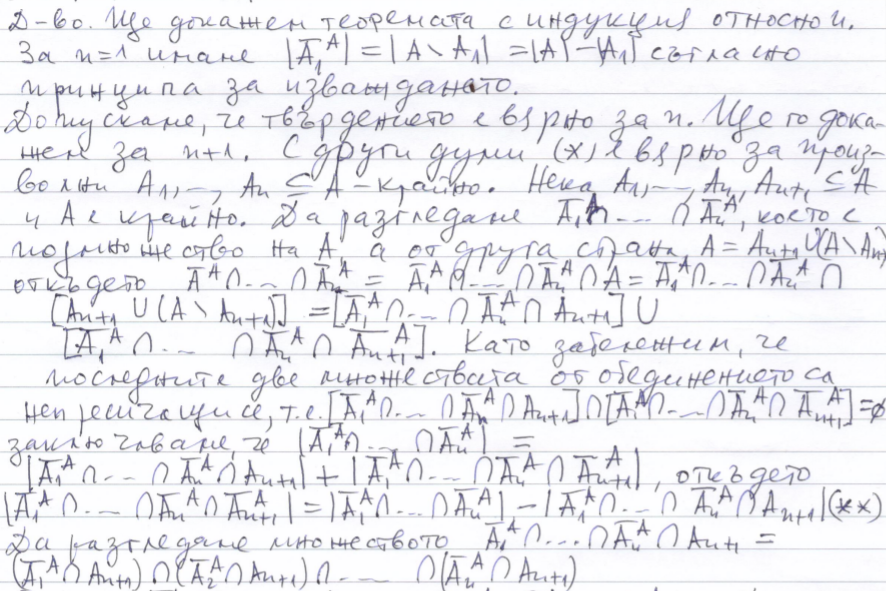 Д-во. Ще докажем теоремата с индукция относно n.
За n=1 имаме |Ā₁ᴬ| = |A \ A₁| = |A| - |A₁| съгласно
принципа за изваждането.
Допускаме, че твърдението е вярно за n. Ще го дока-
жем за n+1. С други думи (*) е вярно за произ-
волни A₁, ..., Aₙ ⊆ A - крайно. Нека A₁, ..., Aₙ, Aₙ₊₁ ⊆ A
и A е крайно. Да разгледаме Ā₁ᴬ∩ ... ∩ Āₙᴬ, което е
подмножество на A, а от друга страна A = Aₙ₊₁ ∪ (A \ Aₙ₊₁)
откъдето Ā₁ᴬ∩ ... ∩ Āₙᴬ = Ā₁ᴬ∩ ... ∩ Āₙᴬ ∩ A = Ā₁ᴬ∩ ... ∩ Āₙᴬ ∩
[Aₙ₊₁ ∪ (A \ Aₙ₊₁)] = [Ā₁ᴬ∩ ... ∩ Āₙᴬ ∩ Aₙ₊₁] ∪
[Ā₁ᴬ ∩ ... ∩ Āₙᴬ ∩ Āₙ₊₁ᴬ]. Като забележим, че
последните две множествата от обединението са
непресичащи се, т.е. [Ā₁ᴬ∩ ... ∩ Āₙᴬ ∩ Aₙ₊₁] ∩ [Ā₁ᴬ∩ ... ∩ Āₙᴬ ∩ Āₙ₊₁ᴬ] = ∅
заключаваме, че |Ā₁ᴬ∩ ... ∩ Āₙᴬ| =
|Ā₁ᴬ ∩ ... ∩ Āₙᴬ ∩ Aₙ₊₁| + |Ā₁ᴬ ∩ ... ∩ Āₙᴬ ∩ Āₙ₊₁ᴬ|, откъдето
|Ā₁ᴬ ∩ ... ∩ Āₙᴬ ∩ Āₙ₊₁ᴬ| = |Ā₁ᴬ ∩ ... ∩ Āₙᴬ| - |Ā₁ᴬ ∩ ... ∩ Āₙᴬ ∩ Aₙ₊₁| (**)
Да разгледаме множеството Ā₁ᴬ ∩ ... ∩ Āₙᴬ ∩ Aₙ₊₁ =
(Ā₁ᴬ ∩ Aₙ₊₁) ∩ (Ā₂ᴬ ∩ Aₙ₊₁) ∩ ... ∩ (Āₙᴬ ∩ Aₙ₊₁)